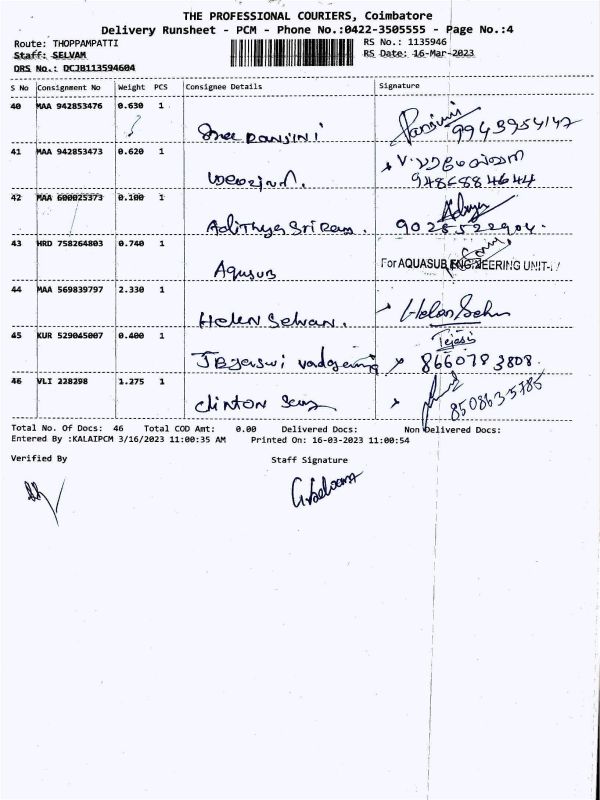 THE PROFESSIONAL COURIERS, Coimbatore
Delivery Runsheet - PCM - Phone No.:0422-3505555 - Page No.:4
Route: THOPPAMPATTI
RS No.: 1135946
Staff: SELVAM
RS Date: 16-Mar-2023
DRS No.: DCJB113594604
S No Consignment No Weight PCS Consignee Details Signature
40 MAA 942853476 0.630 1
Shree RANJINI 9943954147
41 MAA 942853473 0.620 1
9486884644
42 MAA 600025373 0.100 1
Adithya Sri Ram. 9028522904.
43 HRD 758264803 0.740 1
Aquasub For AQUASUB ENGINEERING UNIT-
44 MAA 569839797 2.330 1
Helen Selvan. Helan Selvn
45 KUR 529045007 0.400 1
Tejasi
8660783808.
46 VLI 228298 1.275 1
Clinton 8508635785
Total No. Of Docs: 46 Total COD Amt: 0.00 Delivered Docs: Non Delivered Docs:
Entered By :KALAIPCM 3/16/2023 11:00:35 AM Printed On: 16-03-2023 11:00:54
Verified By Staff Signature